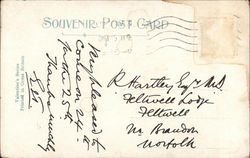 SOUVENIR POST CARD
Valentine's Series
Printed in Great Britain
Very pleased to
come on 24th
for the 25th
Thanks muddly
R Hartley Esqre M.D.
Feltwell Lodge
Feltwell
Nr Brandon
Norfolk